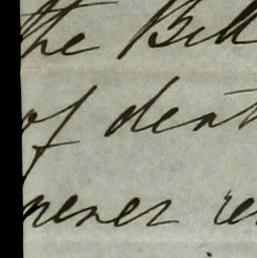 the Bill
of deat
never re